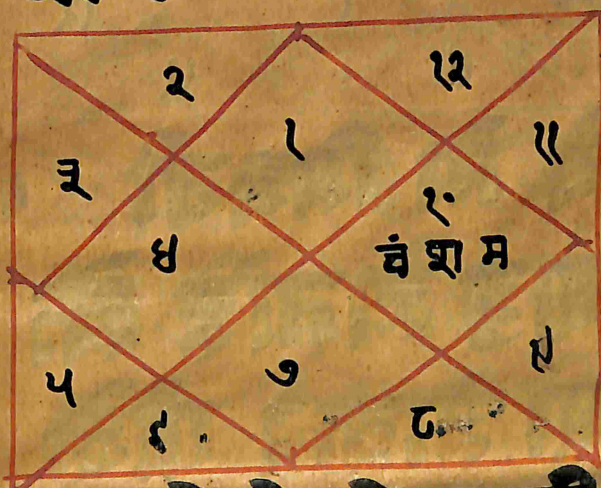 २ १२
१ ११
३
१०
४ चं श म
५ ७ ९
६ ८